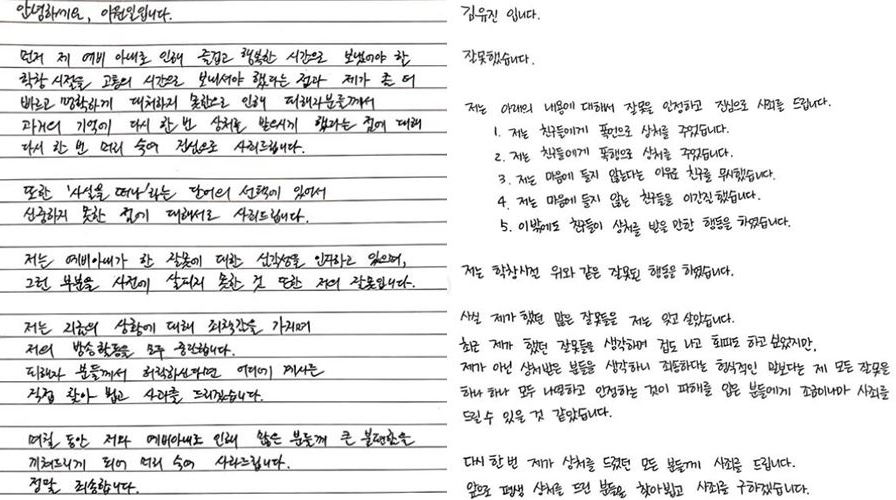 안녕하세요, 이원일입니다.
먼저 제 예비 아내로 인해 즐겁고 행복한 시간으로 보냈어야 할
학창 시절을 고통의 시간으로 보내셔야 했다는 점과 제가 좀 더
바르고 명확하게 대처하지 못함으로 인해 피해자분들께서
과거의 기억에 다시 한 번 상처를 받으시게 했다는 점에 대해
다시 한 번 머리 숙여 진심으로 사죄드립니다.
또한 '사실을 떠나'라는 단어의 선택에 있어서
신중하지 못한 점에 대해서도 사죄드립니다.
저는 예비아내가 한 잘못에 대한 심각성을 인지하고 있으며,
그런 부분을 사전에 살피지 못한 것 또한 저의 잘못입니다.
저는 지금의 상황에 대해 죄책감을 가지며
저의 방송활동을 모두 중단합니다.
피해자 분들께서 허락하신다면 어디에 계시든
직접 찾아 뵙고 사과를 드리겠습니다.
며칠 동안 저와 예비아내로 인해 많은 분들께 큰 불편함을
끼쳐드리게 되어 머리 숙여 사과드립니다.
정말 죄송합니다.
김유진 입니다.
잘못했습니다.
저는 아래의 내용에 대해서 잘못을 인정하고 진심으로 사죄를 드립니다.
1. 저는 친구들에게 폭언으로 상처를 주었습니다.
2. 저는 친구들에게 폭행으로 상처를 주었습니다.
3. 저는 마음에 들지 않는다는 이유로 친구를 무시했습니다.
4. 저는 마음에 들지 않는 친구들을 이간질했습니다.
5. 이밖에도 친구들이 상처를 받을 만한 행동을 하였습니다.
저는 학창시절 위와 같은 잘못된 행동을 하였습니다.
사실 제가 했던 많은 잘못들을 저는 잊고 살았습니다.
최근 제가 했던 잘못들을 생각하며 겁도 나고 회피도 하고 보았지만,
제가 아닌 상처받은 분들을 생각하니 죄송하다는 형식적인 말보다는 제 모든 잘못을
하나 하나 모두 나열하고 인정하는 것이 피해를 입은 분들에게 조금이나마 사죄를
드릴 수 있을 것 같았습니다.
다시 한 번 제가 상처를 드렸던 모든 분들께 사죄를 드립니다.
앞으로 평생 상처를 드린 분들을 찾아뵙고 사죄를 구하겠습니다.